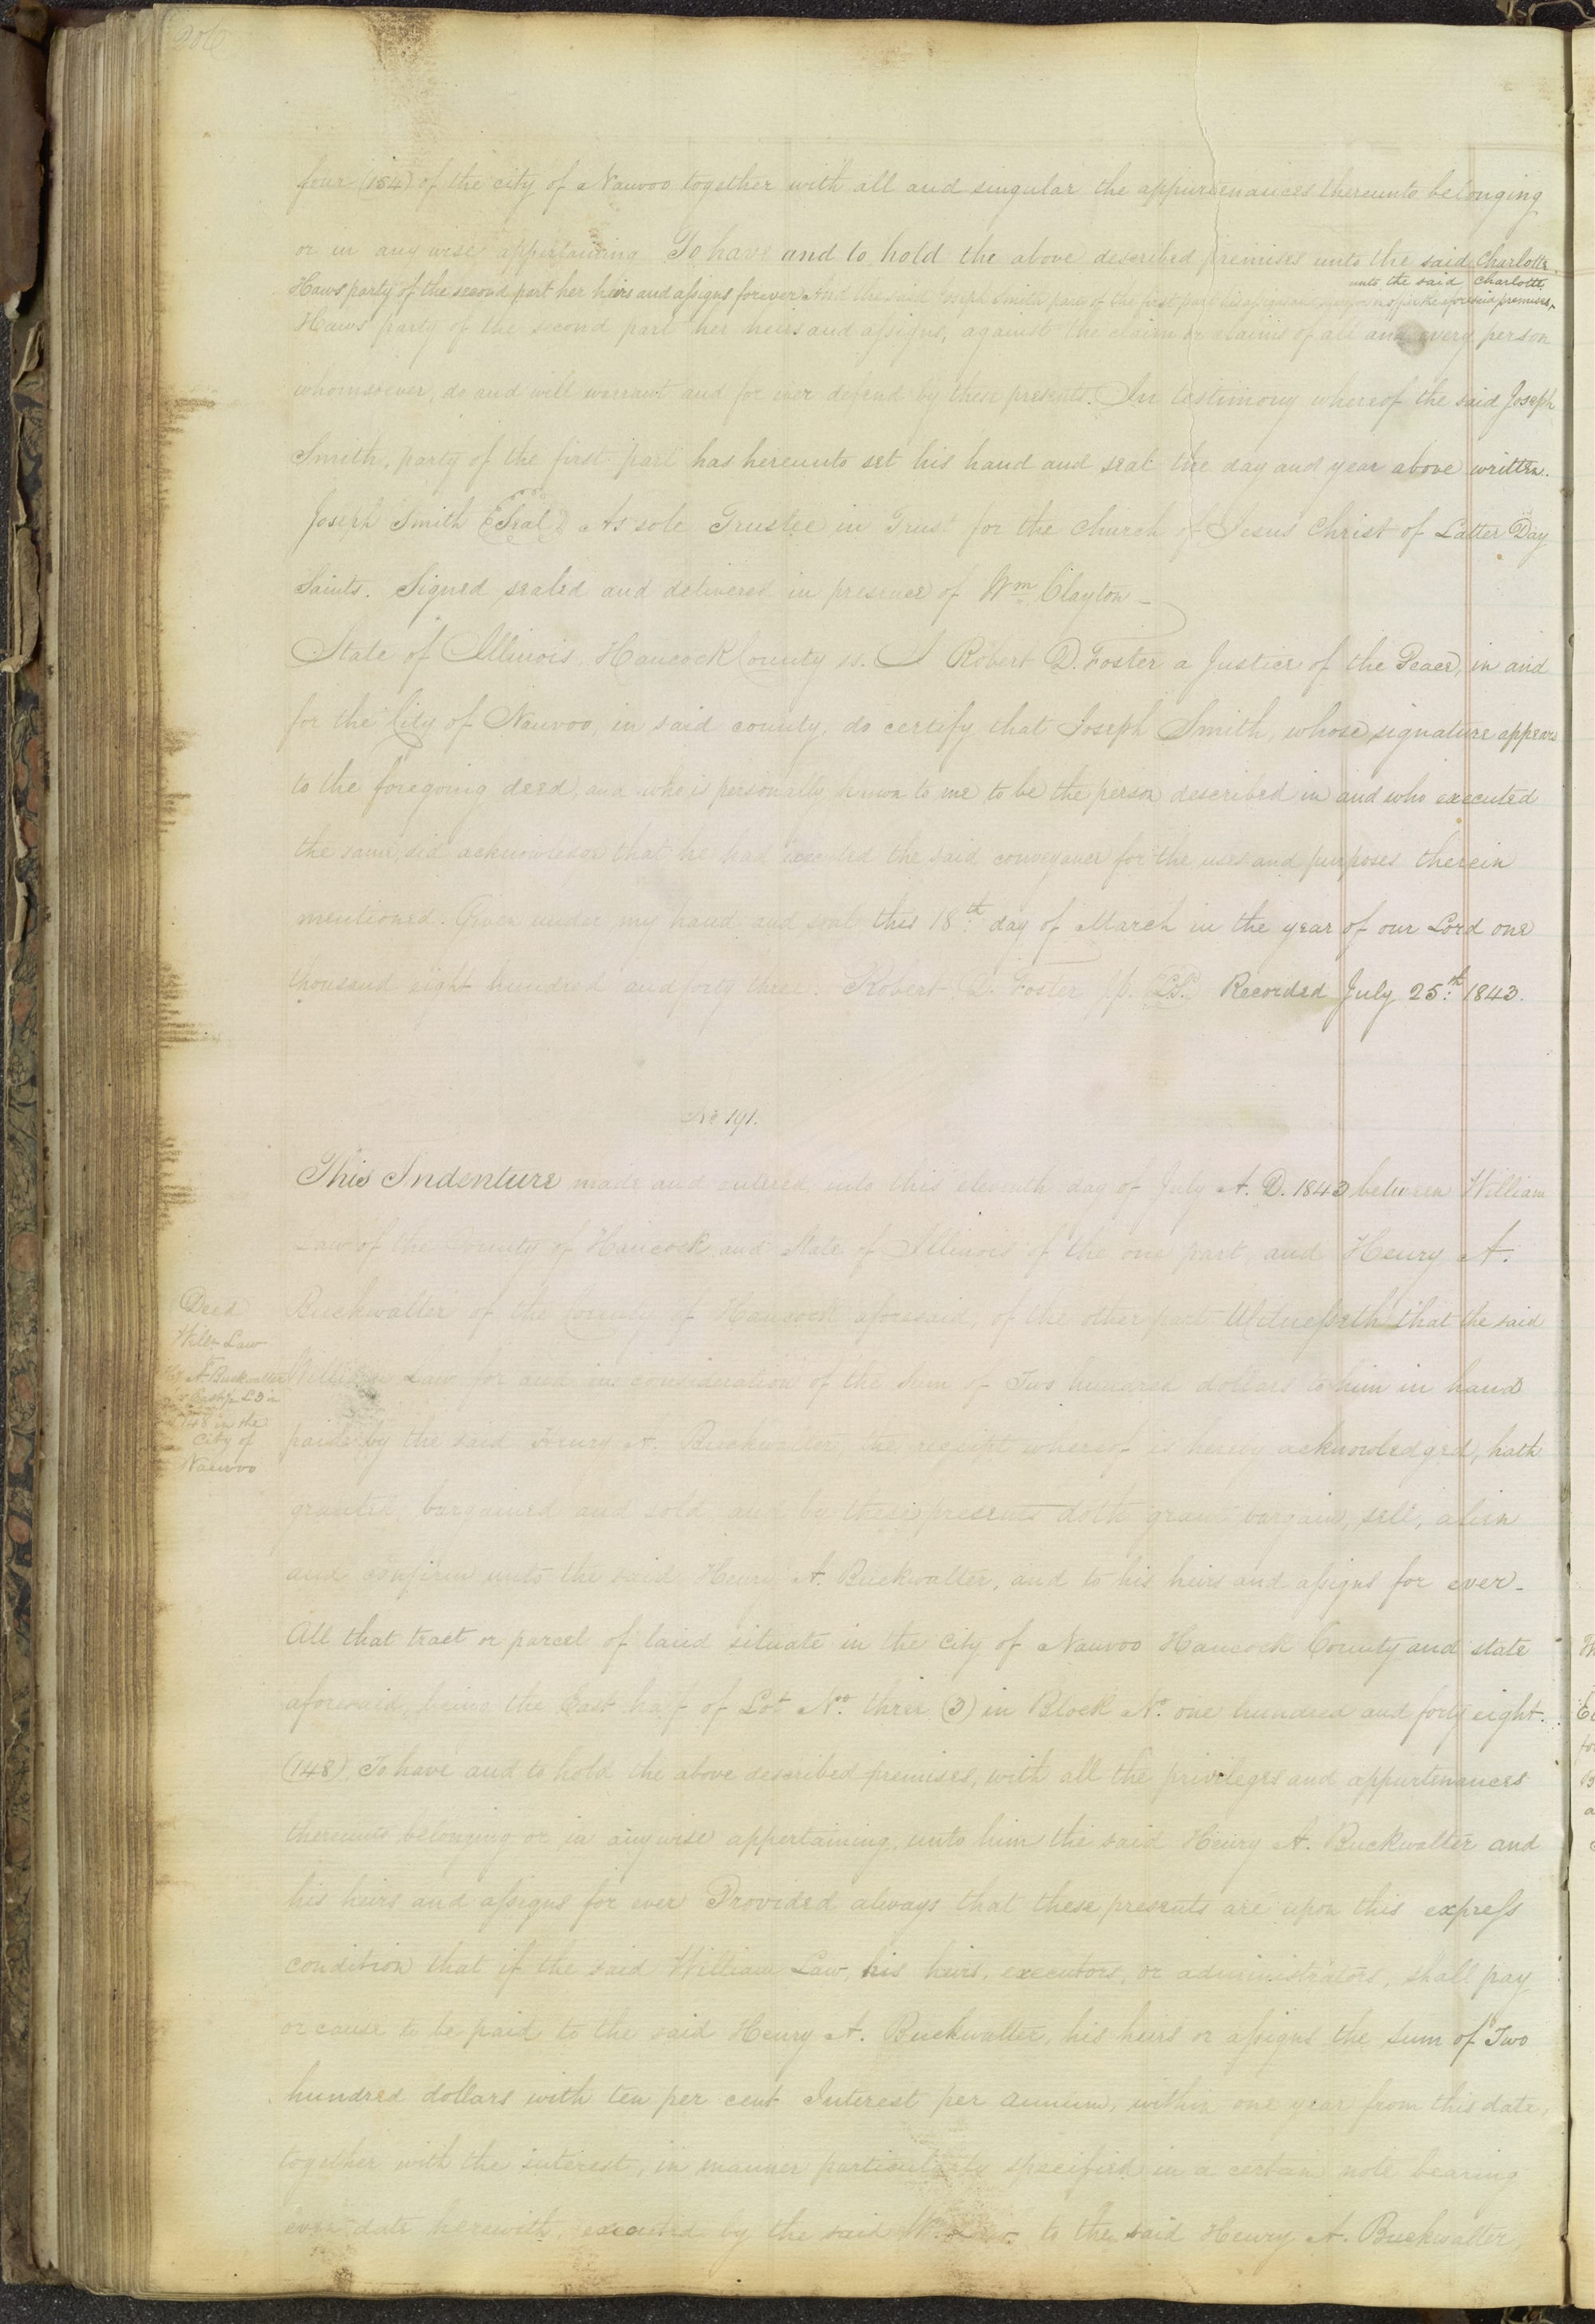 206
four (154) of the city of Nauvoo together with all and singular the appurtenances thereunto belonging
or in any wise appertaining To have and to hold the above described premises unto the said Charlotte
Haws party of the second part her heirs and assigns forever And the said Joseph Smith party of the first part his the aforesaid premises,
unto the said Charlotte
Haws party of the second part her heirs and assigns, against the claim or claims of all and every person
whomsoever, do and will warrant and for ever defend by these presents. In testimony whereof the said Joseph
Smith, party of the first part has hereunto set his hand and seal the day and year above written.
Joseph Smith Seal As sole Trustee in Trust for the Church of Jesus Christ of Latter Day
Saints. Signed sealed and delivered in presence of Wm Clayton
State of Illinois, Hancock County ss. I Robert D. Foster a Justice of the Peace, in and
for the City of Nauvoo, in said county, do certify that Joseph Smith, whose signature appears
to the foregoing deed, and who is personally known to me to be the person described in and who executed
the same, did acknowledge that he had executed the said conveyance for the uses and purposes therein
mentioned. Given under my hand and seal this 18th day of March in the year of our Lord one
thousand eight hundred and forty three. Robert D. Foster J.P. L.S. Recorded July 25th 1843.
No 191.
This Indenture made and entered into this eleventh day of July A. D. 1843 between William
Law of the County of Hancock and State of Illinois of the one part, and Henry A.
Buckwalter of the County of Hancock aforesaid, of the other part Witnesseth that the said
William Law for and in consideration of the sum of Two hundred dollars to him in hand
paid by the said Henry A. Buckwalter the receipt whereof is hereby acknowledged, hath
granted, bargained and sold and by these presents doth grant bargain, sell, alien
and confirm unto the said Henry A. Buckwalter, and to his heirs and assigns for ever-
All that tract or parcel of land situate in the City of Nauvoo Hancock County and state
aforesaid, being the East half of Lot No. three (3) in Block No. one hundred and forty eight.
(148) To have and to hold the above described premises, with all the privileges and appurtenances
thereunto belonging or in anywise appertaining, unto him the said Henry A. Buckwalter and
his heirs and assigns for ever Provided always that these presents are upon this express
condition that if the said William Law, his heirs, executors, or administrators, shall pay
or cause to be paid to the said Henry A. Buckwalter, his heirs or assigns the sum of Two
hundred dollars with ten per cent Interest per annum, within one year from this date,
together with the interest, in manner particularly specified in a certain note bearing
even date herewith, executed by the said Wm Law to the said Henry A. Buckwalter,
Deed
Willm Law
A. Buckwalter
East L 3 in
148 in the
City of
Nauvoo